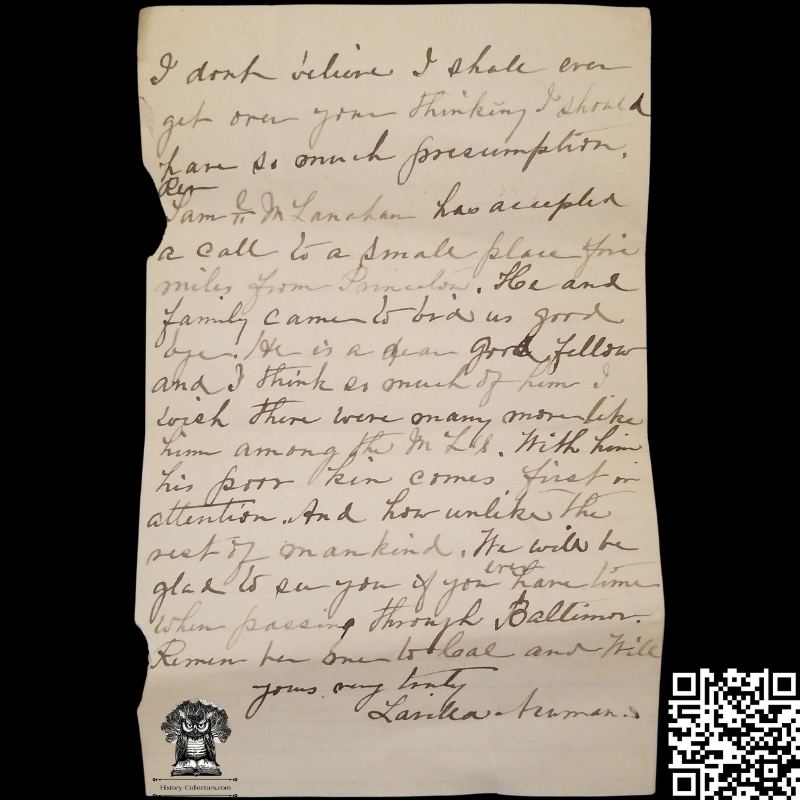 I dont believe I shall ever
get over your thinking I should
have so much presumption.
Rev
Sam M Lanahan has accepted
a call to a small place five
miles from Princeton. He and
family came to bid us good
bye. He is a dear good fellow
and I think so much of him I
wish there were many more like
him among the M L's. With him
his poor kin comes first in
attention. And how unlike the
rest of mankind. We will be
glad to see you if you ever have time
when passing through Baltimor.
Remember me to Cal and Will
yours very truly
Newman.
History-Collectors.com